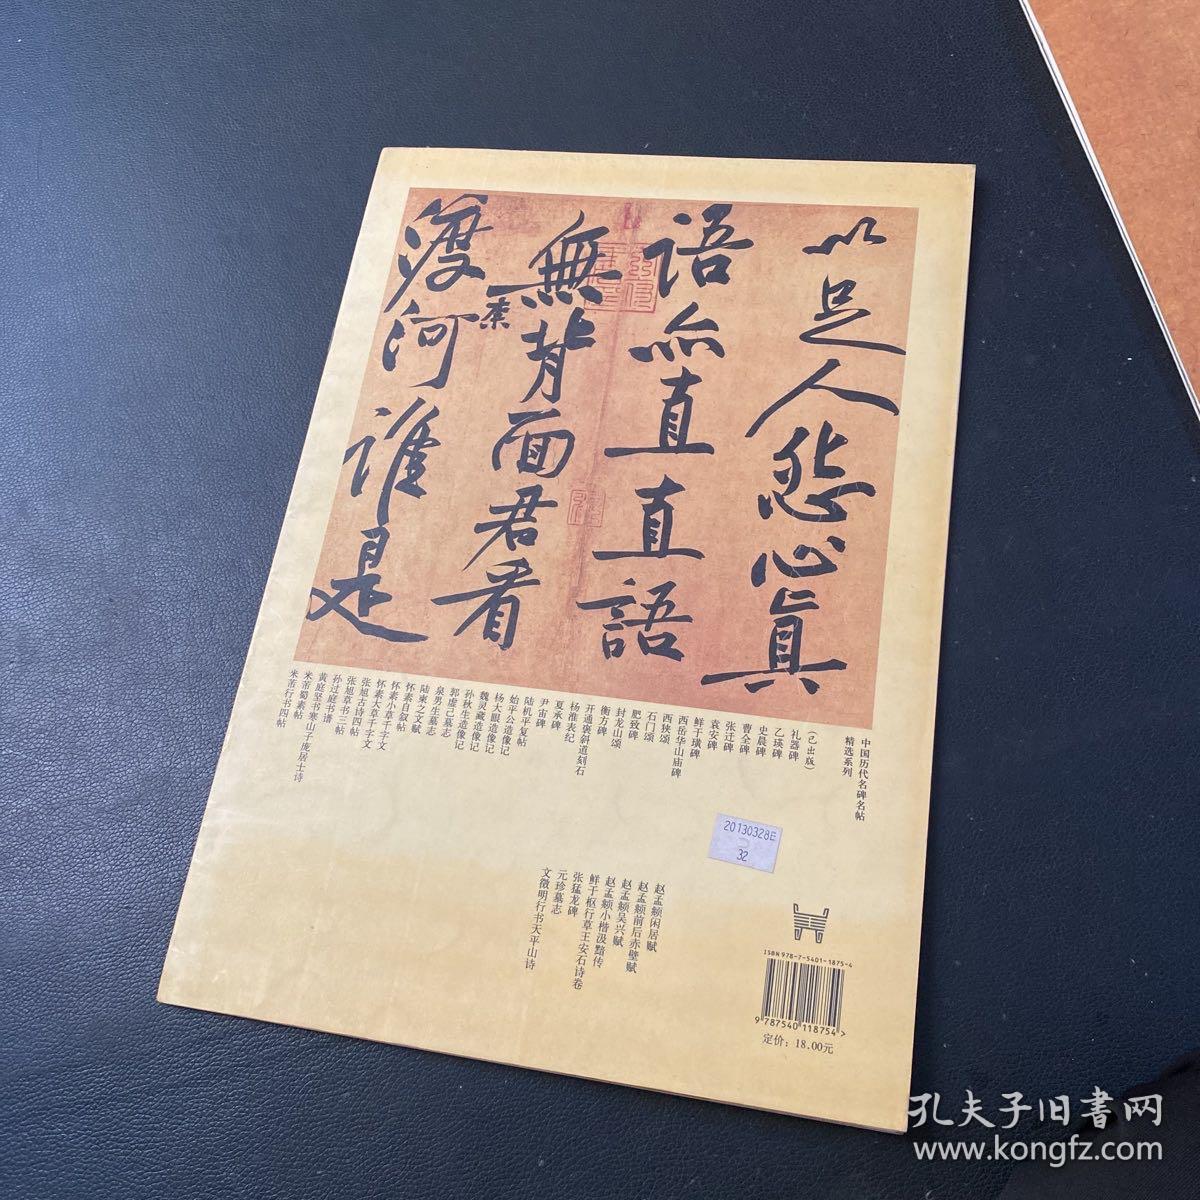 以足人怨心真
語亦直直語
無背面君看
渡河誰是
中国历代名碑名帖
精选系列
(已出版)
礼器碑
乙瑛碑
史晨碑
曹全碑
张迁碑
袁安碑
鲜于璜碑
西岳华山庙碑
西狭颂
石门颂
肥致碑
封龙山颂
衡方碑
开通褒斜道刻石
杨淮表纪
夏承碑
尹宙碑
陆机平复帖
始平公造像记
杨大眼造像记
魏灵藏造像记
孙秋生造像记
郭虚己墓志
泉男生墓志
陆柬之文赋
怀素自叙帖
怀素小草千字文
怀素大草千字文
张旭古诗四帖
张旭草书三帖
孙过庭书谱
黄庭坚书寒山子庞居士诗
米芾蜀素帖
米芾行书四帖
赵孟頫闲居赋
赵孟頫前后赤壁赋
赵孟頫吴兴赋
赵孟頫小楷汲黯传
鲜于枢行草王安石诗卷
张猛龙碑
元珍墓志
文徵明行书天平山诗
20130328E
32
ISBN 978-7-5401-1875-4
9 787540 118754 >
定价：18.00元
孔夫子旧書网
www.kongfz.com